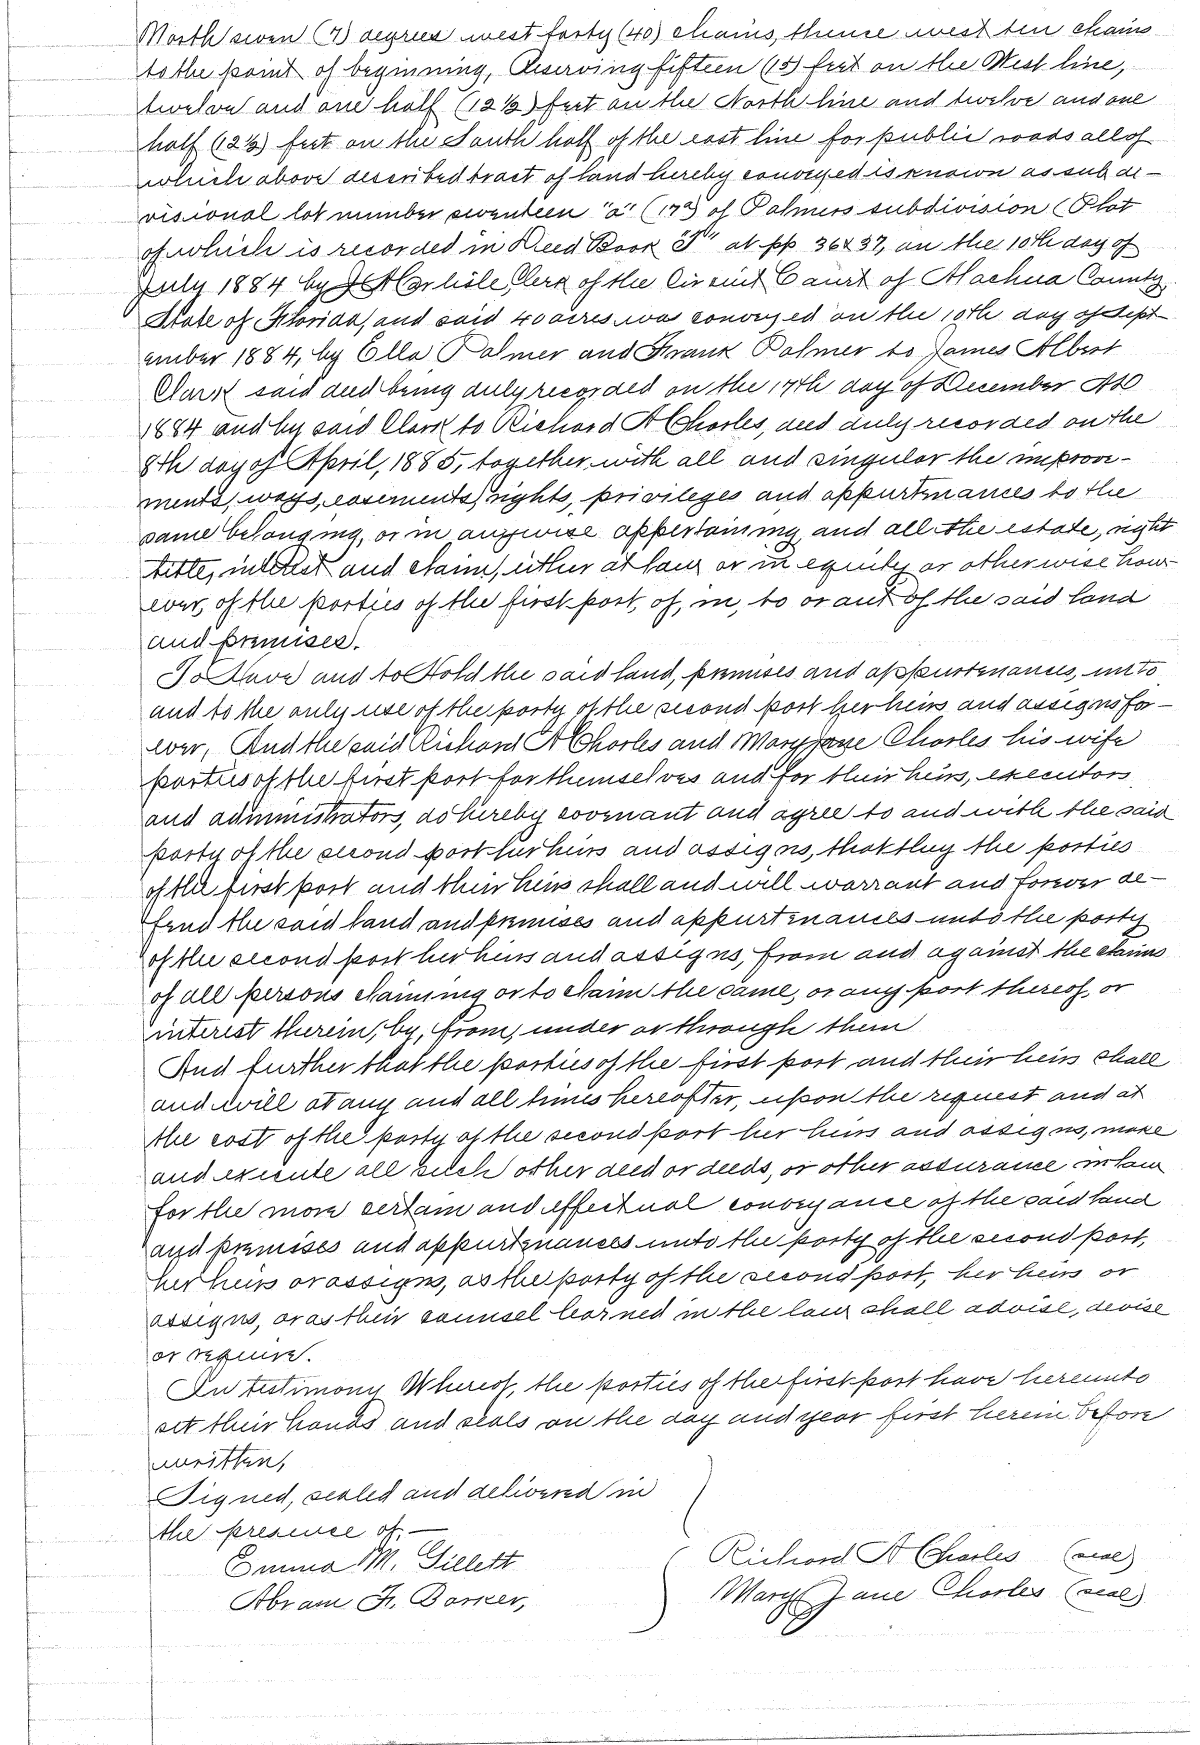 North seven (7) degrees west forty (40) chains, thence west ten chains
to the point of beginning, Reserving fifteen (15) feet on the West line,
twelve and one half (12½) feet on the North line and twelve and one
half (12½) feet on the South half of the east line for public roads all of
which above described tract of land hereby conveyed is known as sub di-
visional lot number seventeen "a" (17a) of Palmers subdivision (Plat
of which is recorded in Deed Book "T" at pp 36 & 37, on the 10th day of
July 1884 by J A Carlisle, Clerk of the Circuit Court of Alachua County
State of Florida, and said 40 acres was conveyed on the 10th day of Sept
ember 1884, by Ella Palmer and Frank Palmer to James Albert
Clark said deed being duly recorded on the 17th day of December AD
1884 and by said Clark to Richard A Charles, deed duly recorded on the
8th day of April, 1885, together with all and singular the improve-
ments, ways, easements, rights, privileges and appurtenances to the
same belonging, or in anywise appertaining, and all the estate, right
title, interest and claim, either at law or in equity or otherwise how-
ever, of the parties of the first part, of, in, to or out of the said land
and premises.
To Have and to Hold the said land, premises and appurtenances, unto
and to the only use of the party of the second part her heirs and assigns for-
ever, And the said Richard A Charles and Mary Jane Charles his wife
parties of the first part for themselves and for their heirs, executors
and administrators, do hereby covenant and agree to and with the said
party of the second part her heirs and assigns, that they the parties
of the first part and their heirs shall and will warrant and forever de-
fend the said land and premises and appurtenances unto the party
of the second part her heirs and assigns, from and against the claims
of all persons claiming or to claim the same, or any part thereof, or
interest therein, by, from, under or through them
And further that the parties of the first part and their heirs shall
and will at any and all times hereafter, upon the request and at
the cost of the party of the second part her heirs and assigns, make
and execute all such other deed or deeds, or other assurance in law
for the more certain and effectual conveyance of the said land
and premises and appurtenances unto the party of the second part,
her heirs or assigns, as the party of the second part, her heirs or
assigns, or as their counsel learned in the law shall advise, devise
or require.
In testimony Whereof, the parties of the first part have hereunto
set their hands and seals on the day and year first herein before
written,
Signed, sealed and delivered in
the presence of.—
Emma M. Gillett
Abram F. Barker,
Richard A Charles (seal)
Mary Jane Charles (seal)